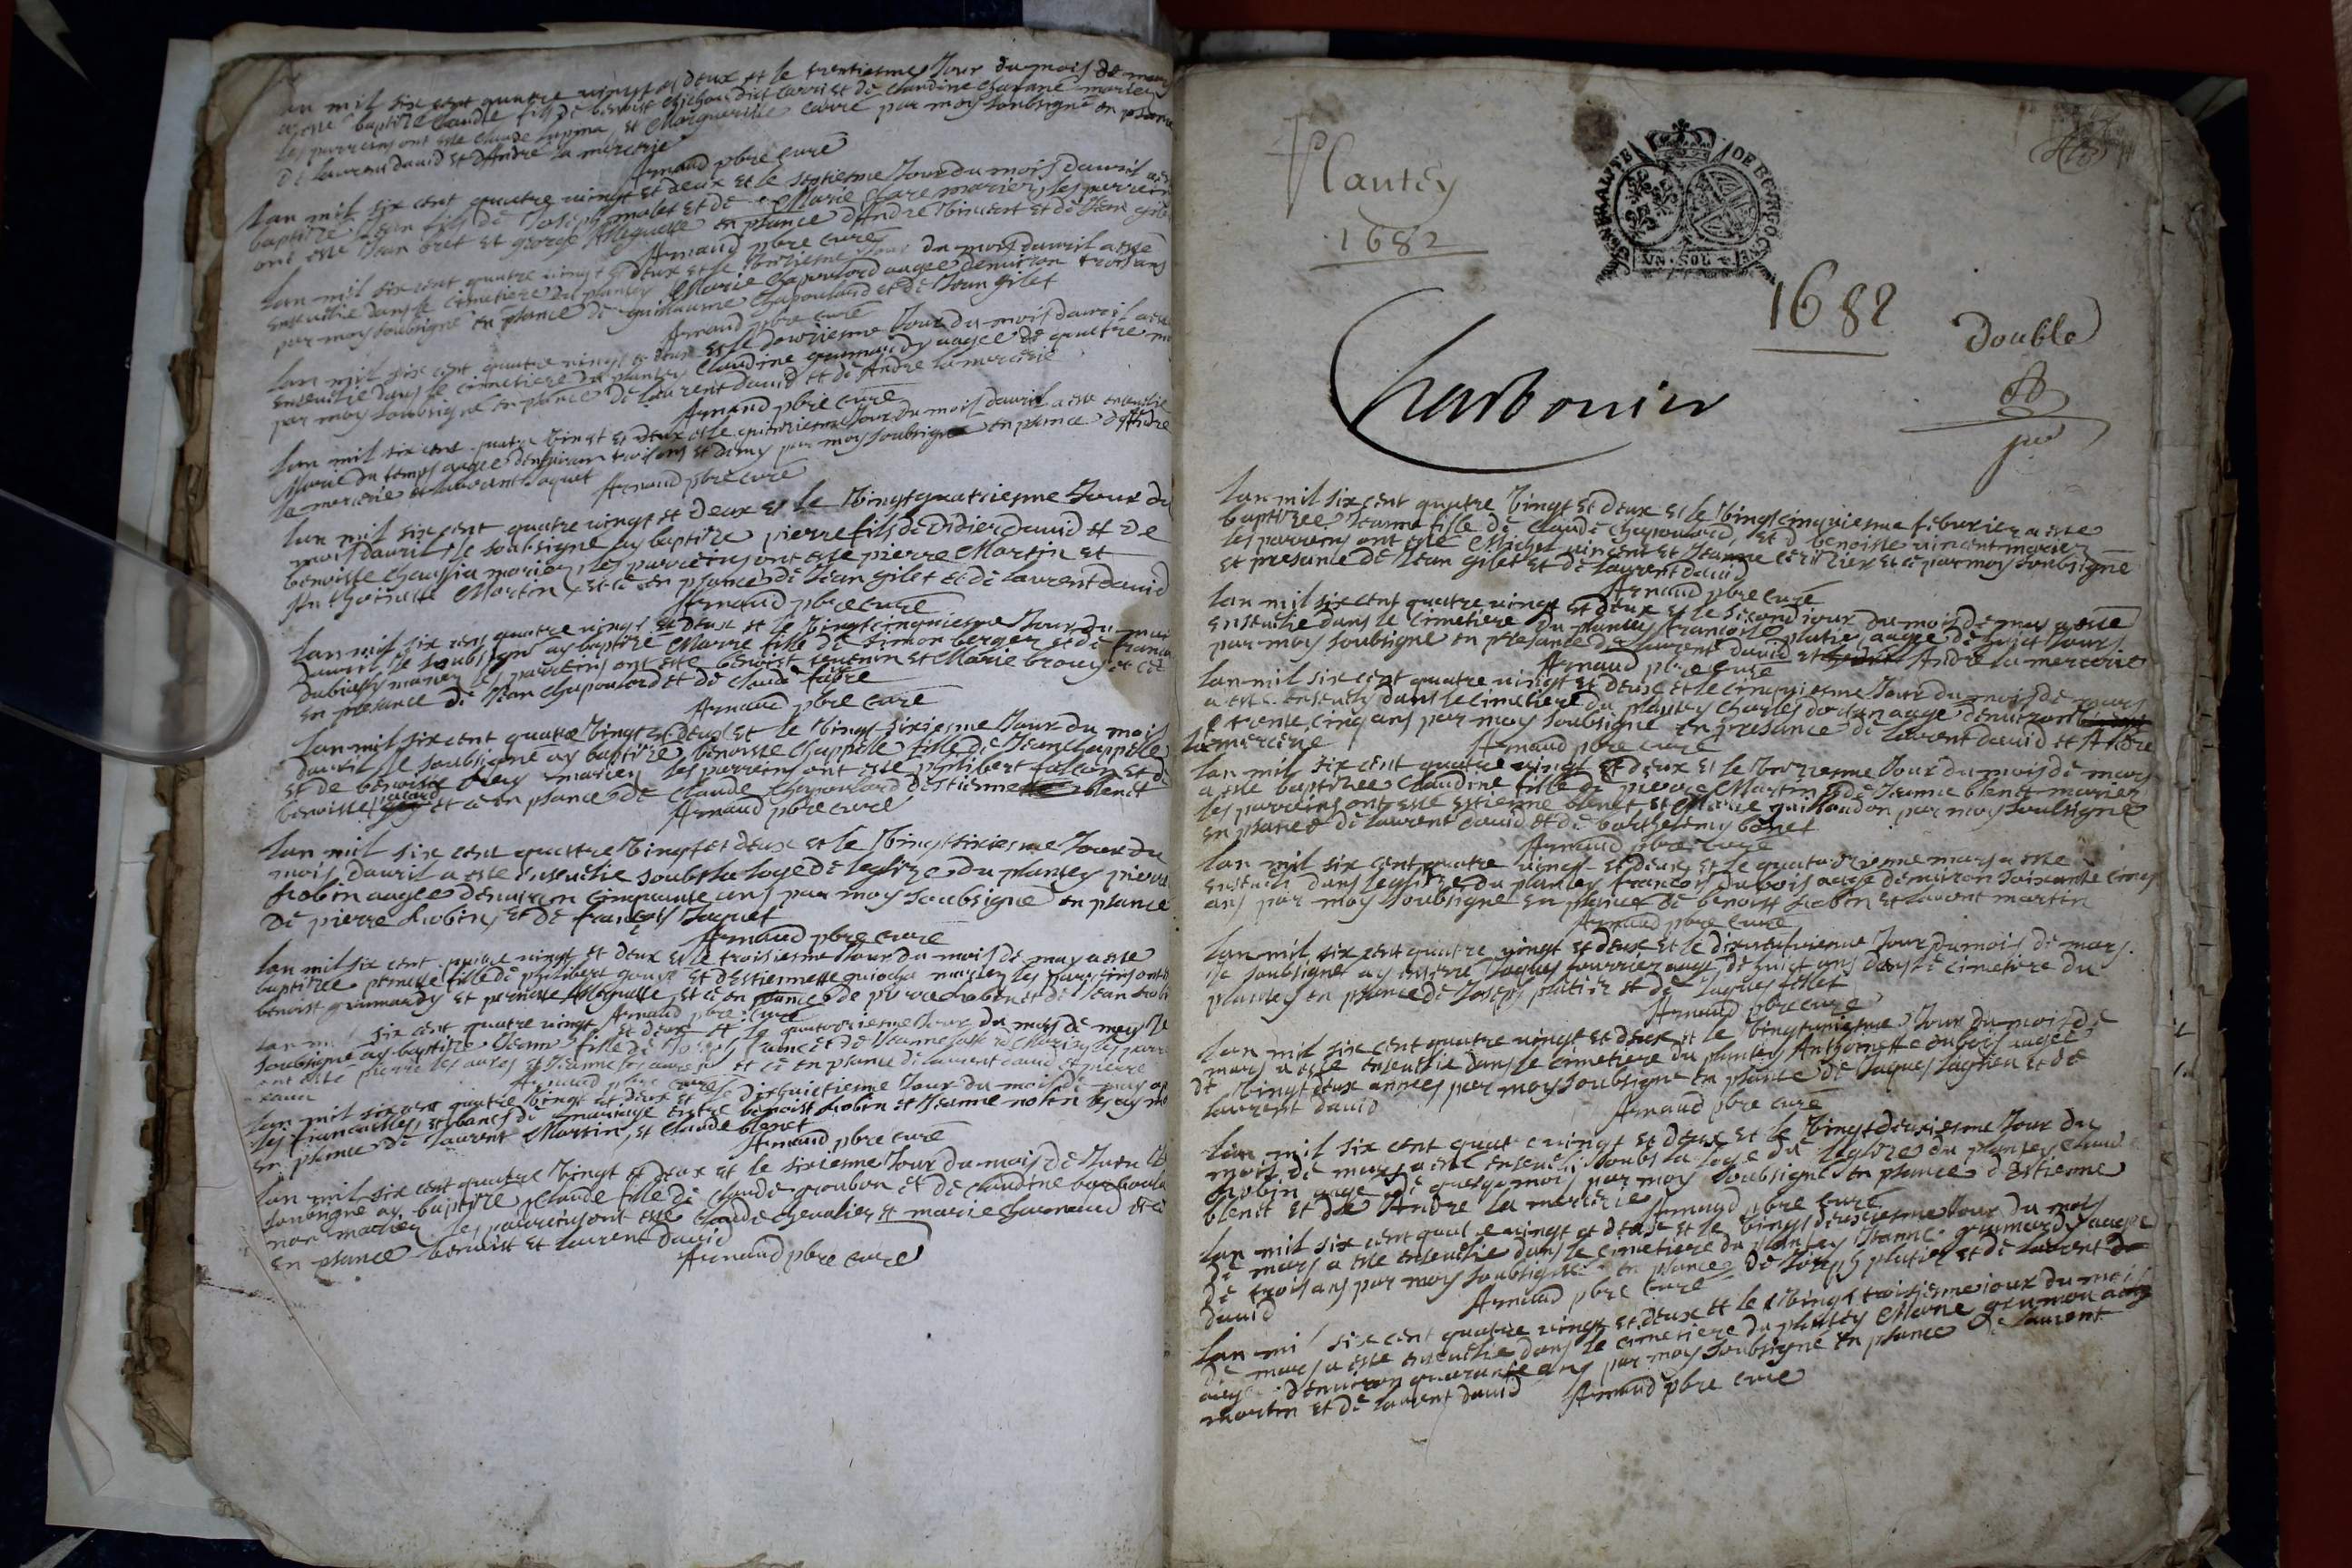 lan mil six cent quatre vingt et deux et le trentiesme Jour du mois de mars
a este baptize Claude fils de benoist et de Claudine mariez
les parreins ont este Claude et Marguerite par moy soubsigne en psance
de laurent dauid et dAndre la mercerie
Arnaud pbre cure
lan mil six cent quatre vingt et deux et le septiesme Jour du mois dauril a este
baptize Jean fils de Joseph molet et de Marie Clare mariez, les parreins
ont este Jean bret et george en psance dAndre Vincent et de Jean gilet
Arnaud pbre cure
lan mil six cent quatre vingt et deux et le Jour du mois dauril a este
enseuelie dans le cimetiere du plantey Marie Chapoulard aagee denuiron trois ans
par moy soubsigne en psance de guillaume Chapoulard et de Jean gilet
Arnaud pbre cure
lan mil six cent quatre vingt et deux et le douziesme Jour du mois dauril a este
enseuelie dans le cimetiere du plantey Claudine grumardy aagee de quattre
par moy soubsigne en psance de laurent dauid et de Andre la mercerie
Arnaud pbre cure
lan mil six cent quatre vingt et deux et le quinziesme Jour du mois dauril a este enseuelie
Marie du temps aagee denuiron trois ans et demy par moy soubsigne en psance dAndre
la mercerie et laurent Jaquet Arnaud pbre cure
lan mil six cent quatre vingt et deux et le Vingtquatriesme Jour du
mois dauril Je soubsigne ay baptize pierre fils de Didier dauid et de
benoiste Chaussia mariez, les parreins ont este pierre Martin et
Anthoinette Martin, et ce en psance de Jean gilet et de laurent dauid
Arnaud pbre cure
lan mil six cent quatre vingt et deux et le Vingtcinquiesme Jour du mois
dauril Je soubsigne ay baptize Marie fille de Simon berger et de
mariez les parreins ont este benoist et Marie brouy et ce
en presance de Jean Chapoulard et de Claude fabre
Arnaud pbre cure
lan mil six cent quatre Vingt et deux et le Vingt sixiesme Jour du mois
dauril Je soubsigne ay baptize benoiste Chappelle fille de Jean Chappelle
et de benoiste brouy mariez les parreins ont este philibert falcon et de
benoiste et ce en psance de Claude Chapoulard destienne blenet
Arnaud pbre cure
lan mil six cent quattre Vingt et deux et le Vingtsixiesme Jour du
mois dauril a este enseuelie soubs la loge de leglize du plantey pierre
robin aagee denuiron cinquante ans par moy soubsigne en psance
de pierre robin, et de francois Jaquet
Arnaud pbre cure
lan mil six cent quatre vingt et deux et le troisiesme Jour du mois de may a este
baptizee pernette fille de philibert et destiennette mariez les parreins ont este
benoist grumardy et pernette et ce en psance de pierre robin et de Jean
Arnaud pbre cure
six cent quatre vingt et deux et le quatorziesme Jour du mois de may Je
soubsigne ay baptize Jeanne fille de et de Jeanne mariez les parreins
ont este pierre et Jeanne et ce en psance de laurent dauid et pierre
Arnaud pbre cure
lan mil six cent quatre Vingt et deux et le dixhuictiesme Jour du mois de may
les fiancailles, et bancs de mariage entre benoist robin et Jeanne
en psance de laurent Martin, et Claude blenet
Arnaud pbre cure
lan mil six cent quattre Vingt et deux et le sixiesme Jour du mois de Juin
soubsigne ay baptize Claude fille de Claude groubon et de Claudine
mariez les parreins ont este Claude Chevalier et marie et ce
en psance benoist et laurent dauid
Arnaud pbre cure
Plantey
1682
GENERALITE DE BOURGOGNE
VN·SOL
1682
Double
Charbonier
lan mil six cent quatre Vingt et deux et le Vingtcinquiesme feburier a este
baptizee Jeanne fille de Claude Chapoulard, et d benoiste vincent mariez
les parreins ont este Michel vincent et Jeanne et ce par moy soubsigne
et presance de Jean gilet et de laurent dauid
Arnaud pbre cure
lan mil six cent quatre vingt et deux et le second jour du mois de mars a este
enseuelie dans le cimetiere du plantey francoise platie, aagee de huict Jours
par moy soubsigne en presance de laurent dauid et Andre la mercerie
Arnaud pbre cure
lan mil six cent quatre vingt et deux et le cinquiesme Jour du mois de mars
a este enseuely dans le cimetiere du plantey Charles aage denuiron
trente cinq ans par moy soubsigne en presance de laurent dauid et Andre
la mercerie Arnaud pbre cure
lan mil six cent quatre vingt et deux et le treziesme Jour du mois de mars
a este baptizee Claudine fille de pierre Martin et de Jeanne blenet mariez
les parreins ont este estienne blenet et Marie guillaudon par moy soubsigne
en psance de laurent dauid et de barthelemy bonet
Arnaud pbre cure
lan mil six cent quatre vingt et deux et le quatorziesme mars a este
enseueli dans leglize du plantey francois dubois aage denuiron soixante cinq
ans par moy soubsigne en psance de benoist robin et laurent martin
Arnaud pbre cure
lan mil six cent quatre vingt et deux et le Jour du mois de mars
Je soubsigne ay enterre Jaques fourrier aage de huict ans dans le cimetiere du
plantey en psance de Joseph platier et de Jaques
Arnaud pbre cure
lan mil six cent quatre vingt et deux et le Vingtuniesme Jour du mois de
mars a este enseuelie dans le cimetiere du plantey Anthoinette dubois aagee
de Vingt deux annees par moy soubsigne en psance de Jaques et de
laurent dauid Arnaud pbre cure
lan mil six cent quatre vingt et deux et le Vingtdeuxiesme Jour du
mois de mars a este enseueli soubs la loge de leglize du plantey Claude
robin aage de quelque mois par moy soubsigne en psance dEstienne
blenet et de Andre la mercerie Arnaud pbre cure
lan mil six cent quatre vingt et deux et le Vingtdeuxiesme Jour du mois
de mars a este enseuelie dans le cimetiere du plantey Jeanne grumardy aagee
de trois ans par moy soubsigne en psance de Joseph platier et de laurent
dauid Arnaud pbre cure
lan mil six cent quatre vingt et deux et le Vingt troisiesme jour du mois
de mars a este enseuelie dans le cimetiere du plantey Marie
aagee denuiron quarante ans par moy soubsigne en psance de laurent
martin et de laurent dauid Arnaud pbre cure